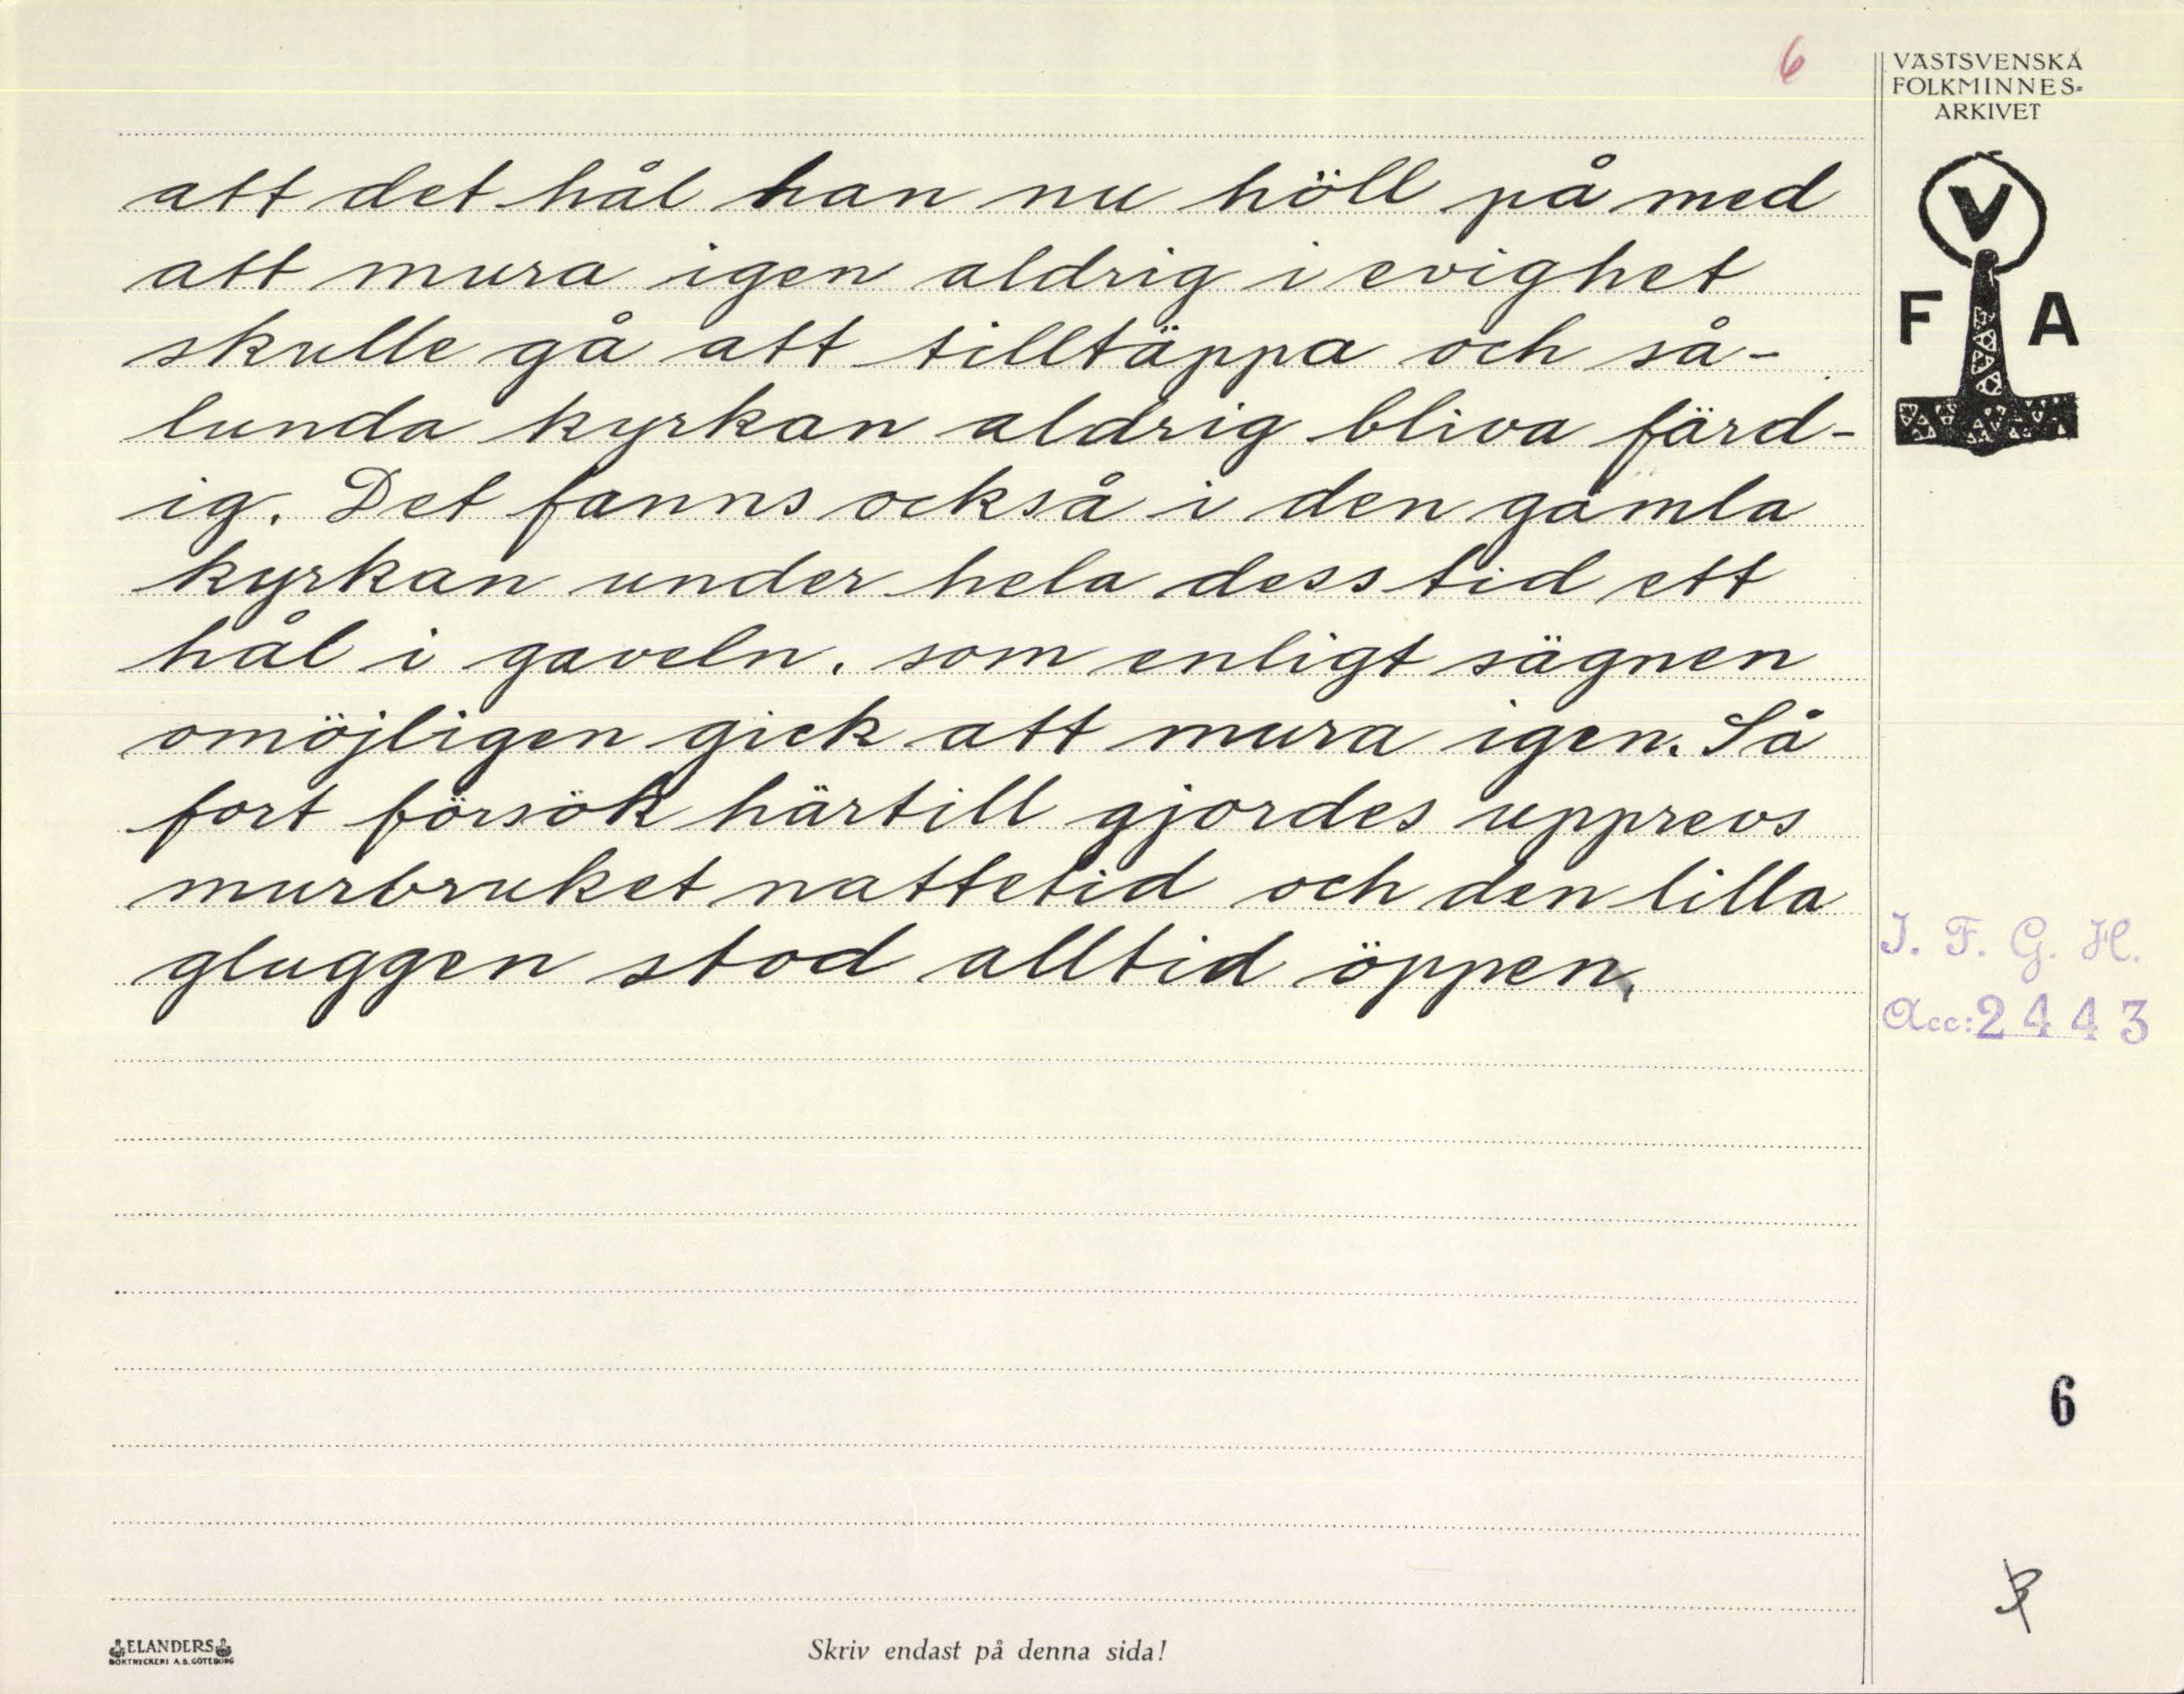 6
VÄSTSVENSKA
FOLKMINNES-
ARKIVET
V
F A
att det hål han nu höll på med
att mura igen aldrig i evighet
skulle gå att tilltäppa och så-
lunda kyrkan aldrig bliva färd-
ig. Det fanns också i den gamla
kyrkan under hela dess tid ett
hål i gaveln, som enligt sägnen
omöjligen gick att mura igen. Så
fort försök härtill gjordes upprevs
murbruket nattetid och den lilla
gluggen stod alltid öppen.
I. F. G. H.
Acc: 2443
6
ELANDERS
BOKTRYCKERI A.B. GÖTEBORG
Skriv endast på denna sida!